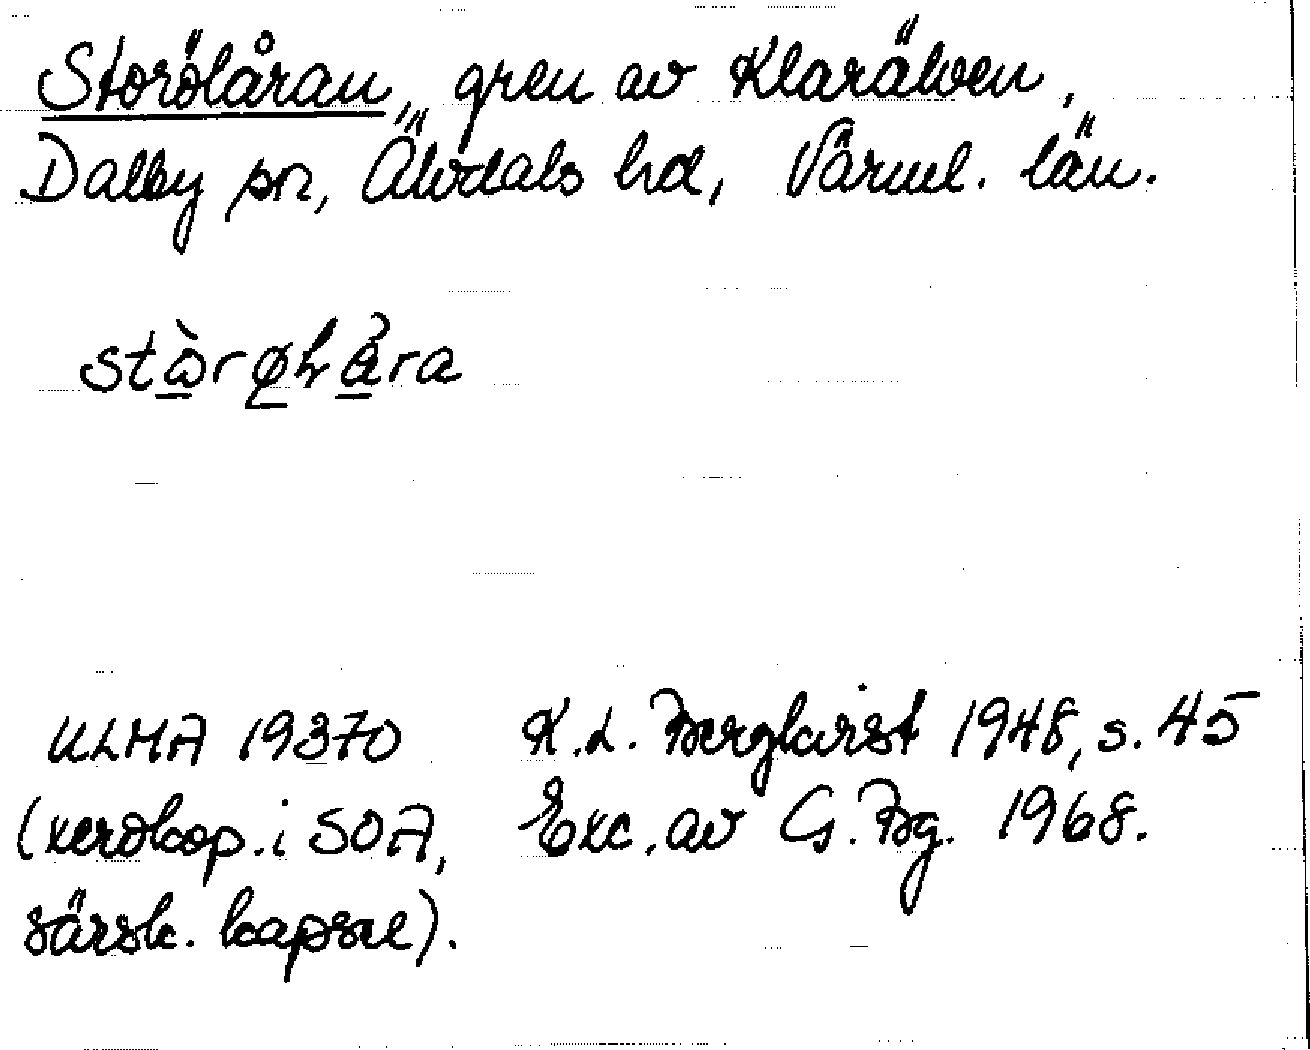 Storölåran, gren av Klarälven,
Dalby sn, Älvdals hd, Värml. län.
stὼrølåra
ULMA 19370 K.L. Bergkvist 1948, s. 45
(xerokop. i SOA, Exc. av G. Bg. 1968.
särsk. kapsel).